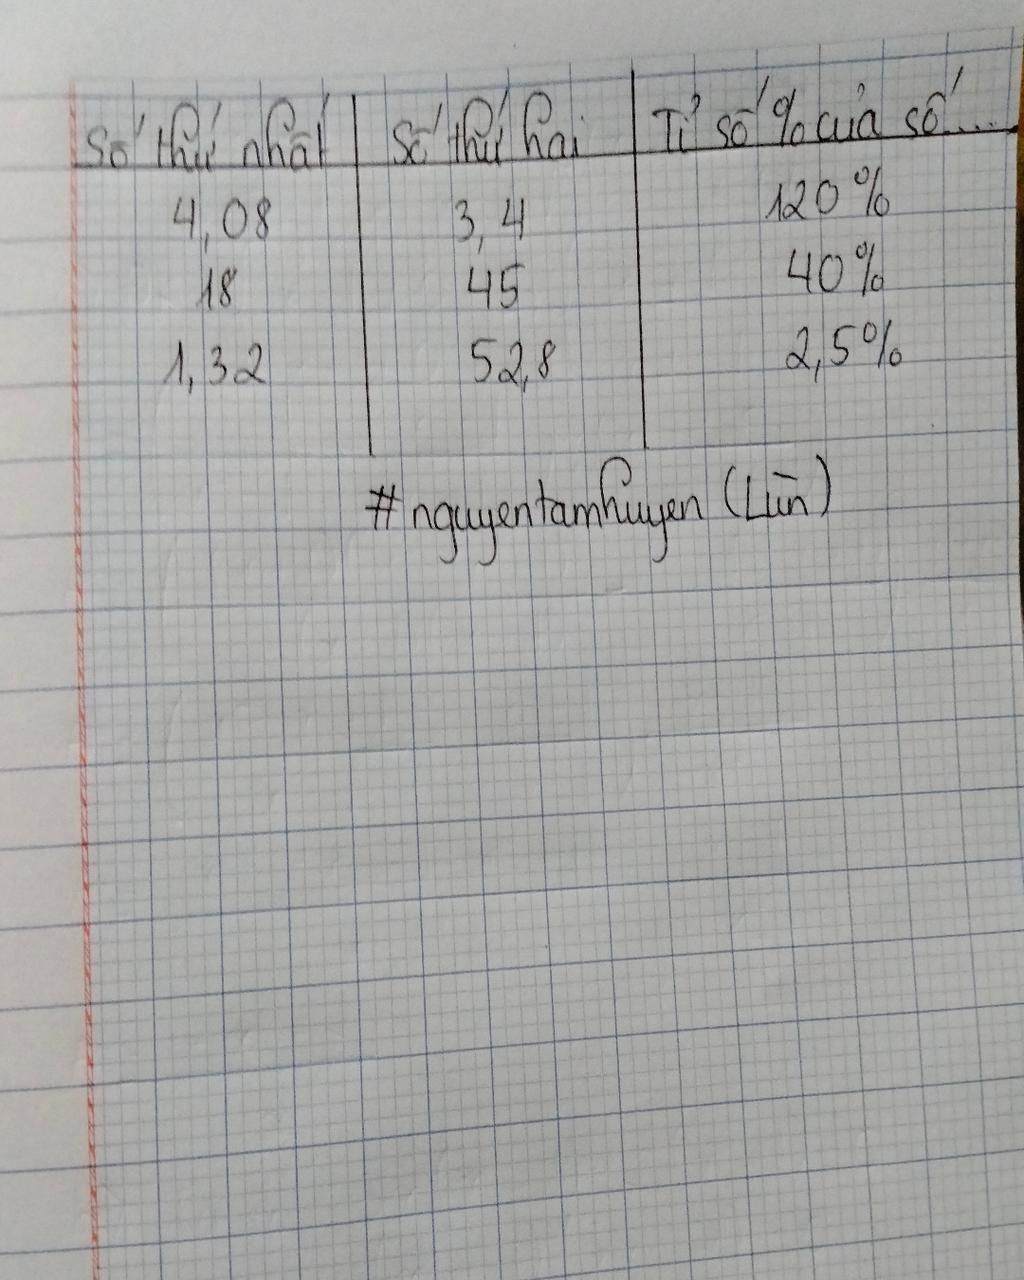 Số thứ nhất Số thứ hai Tỉ số % của số...
4,08 3,4 120%
18 45 40%
1,32 52,8 2,5%
#nguyentamhuyen (Lùn)